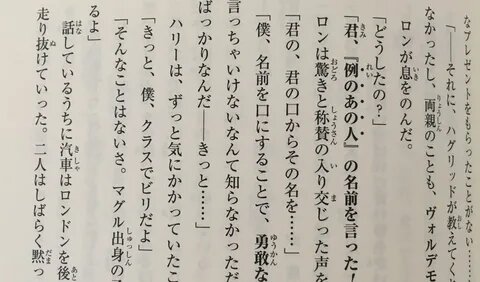 なプレゼントをもらったことがない……
「――それに、ハグリッドが教えてく
なかったし、両親のことも、ヴォルデモ
ロンが息をのんだ。
「どうしたの？」
「君、『例のあの人』の名前を言った！
ロンは驚きと称賛の入り交じった声を
「君の、君の口からその名を……」
「僕、名前を口にすることで、勇敢な
言っちゃいけないなんて知らなかっただ
ばっかりなんだ――きっと……」
ハリーは、ずっと気にかかっていたこ
「きっと、僕、クラスでビリだよ」
「そんなことはないさ。マグル出身の
るよ」
話しているうちに汽車はロンドンを後
走り抜けていった。二人はしばらく黙っ